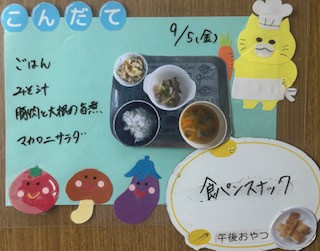 こんだて
9/5(金)
ごはん
みそ汁
豚肉と大根の旨煮
マカロニサラダ
食パンスナック
午後おやつ